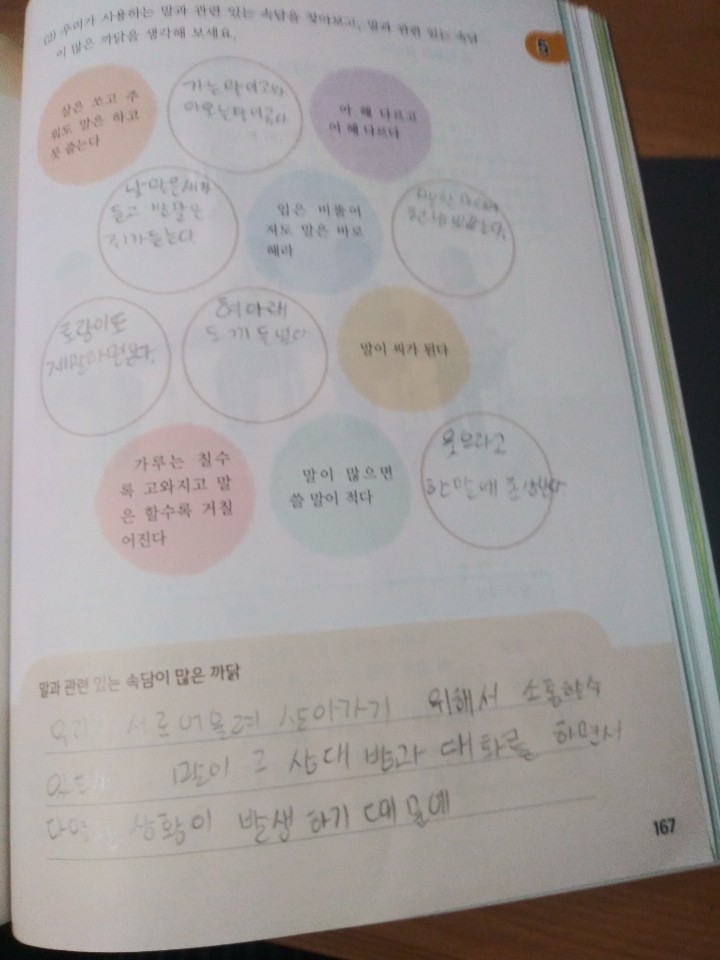 (2) 우리가 사용하는 말과 관련 있는 속담을 찾아보고, 말과 관련 있는 속담
이 많은 까닭을 생각해 보세요.
5
살은 쏘고 주
워도 말은 하고
못 줍는다
가는 말이 고와야
아 해 다르고
어 해 다르다
낮말은 새가
듣고 밤말은
쥐가 듣는다
입은 비뚤어
져도 말은 바로
해라
호랑이도
제 말 하면 온다.
혀 아래
도끼 들었다
말이 씨가 된다
가루는 칠수
록 고와지고 말
은 할수록 거칠
어진다
말이 많으면
쓸 말이 적다
웃으라고
한 말에 초상난다
말과 관련 있는 속담이 많은 까닭
서로 어울려 살아가기 위해서 소통할 수
말이 그 상대방과 대화를 하면서
상황이 발생하기 때문에
167